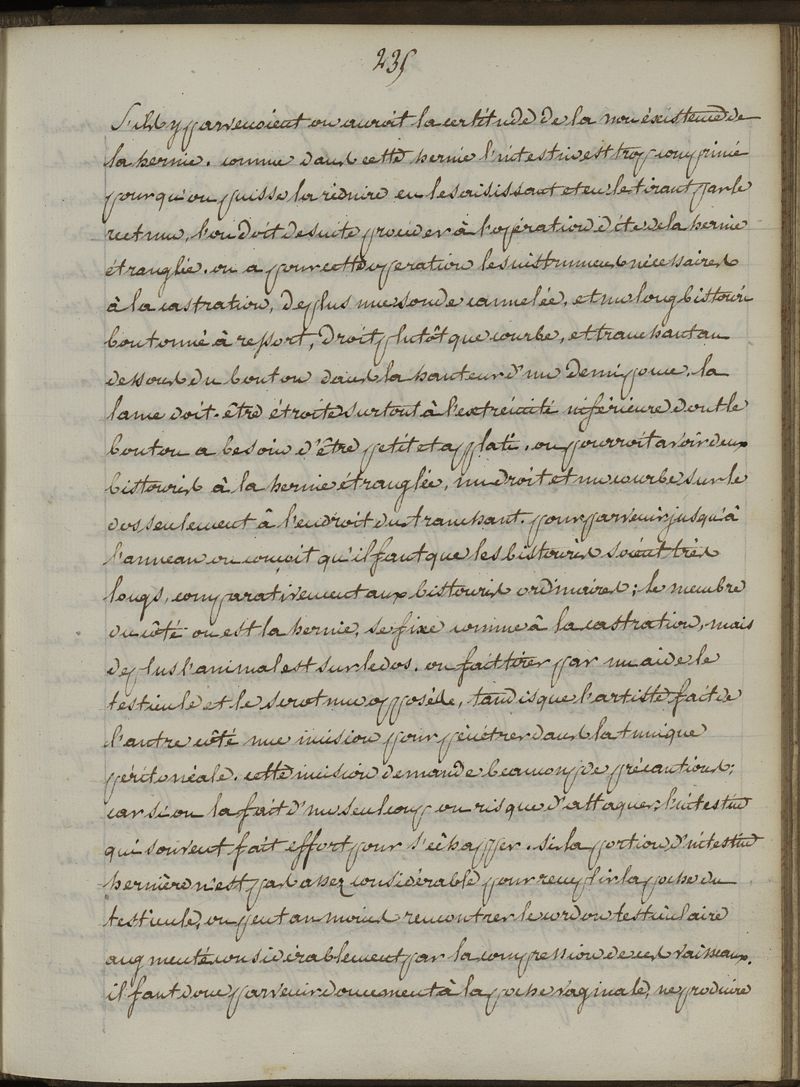 235
S'ils y parvenoient on auroit la certitude de la non éxistence de
la hernie. comme dans cette hernie l'intestin est trop comprimé
pour qu'on puisse la réduire en le saisissant et en le tirant par le
rectum, l'on doit de suite procéder à l'opération dite de la hernie
étranglée. on a pour cette operation les instrumens nécessaires
à la castration, de plus une sonde cannelée, et un long bistouri
boutonné à ressort, droit plutôt que courbe, et tranchant au
dessous du bouton dans la hauteur d'un demi pouce. la
lame doit-être étroite surtout à l'extrémité inférieure dont le
bouton a besoin d'être petit et applati. on pourroit avoir deux
bistouris à la hernie étranglée, un droit et un courbe sur le
dos seulement à l'endroit du tranchant. pour parvenir jusqu'à
l'anneau on conçoit qu'il faut que les bistouris soient très
longs, comparativement aux bistouris ordinaires; le membre
du côté ou est la hernie, se fixe comme à la castration, mais
de plus l'animal est sur le dos. on fait tirer par un aide le
testicule et le scrotum opposé de, tandis que l'artiste fait de
l'autre côté une incision pour pénétrer dans la tunique
péritonéale. cette incision demande beaucoup de précautions;
car si on la fait d'un seul coup on risque d'attaquer l'intestin
qui souvent fait effort pour s'échapper. si la portion d'intestin
hernière n'est pas assez considérable pour remplir la poche du
testicule, on peut au moins rencontrer le cordon testiculaire
augmenté considérablement par la compression de ces vaisseaux.
il faut donc parvenir doucement à la poche vaginale, ne produire